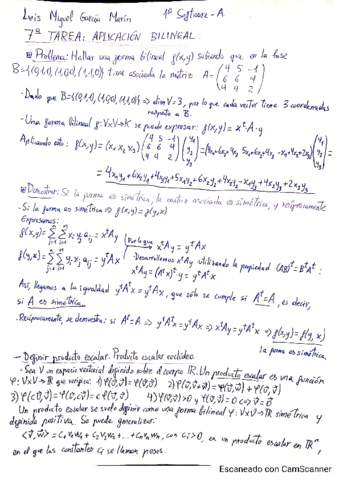 Luis Miguel García Marín 1º Software-A
7ª TAREA: APLICACIÓN BILINEAL.
Problema: Hallar una forma bilineal f(x,y) sabiendo que en la base
B={(0,1,1), (1,0,1), (1,1,0)} tiene asociada la matriz A= (4 5 -1
6 6 4
4 4 2)
-Dado que B={(0,1,1), (1,0,1), (1,1,0)} => dim V=3, por lo que cada vector tiene 3 coordenadas
respecto a B.
-Una forma bilineal f: VxV→K se puede expresar: f(x,y) = xᵗA·y
Aplicando esto: f(x,y) = (x₁ x₂ x₃) (4 5 -1
6 6 4
4 4 2) (y₁
y₂
y₃) = (4x₁+6x₂+4x₃ 5x₁+6x₂+4x₃ -x₁+4x₂+2x₃) (y₁
y₂
y₃) =
= 4x₁y₁+6x₂y₁+4x₃y₁+5x₁y₂+6x₂y₂+4x₃y₂-x₁y₃+4x₂y₃+2x₃y₃
Demostrar: Si la forma es simétrica, la matriz asociada es simétrica, y recíprocamente
-Si la forma es simétrica => f(x,y)=f(y,x)
Expresamos:
f(x,y)= ∑∑ xᵢyⱼaᵢⱼ = xᵗAy
Por lo que xᵗAy = yᵗAx
f(y,x)= ∑∑ xᵢyⱼaᵢⱼ = yᵗAx
-Desarrollamos xᵗAy utilizando la propiedad (AB)ᵗ=BᵗAᵗ:
xᵗAy = (Aᵗx)ᵗy = yᵗAᵗx
Así, llegamos a la igualdad yᵗAᵗx = yᵗAx, que sólo se cumple si Aᵗ=A, es decir,
si A es simétrica.
-Recíprocamente, se demuestra: si Aᵗ=A => yᵗAᵗx=yᵗAx => xᵗAy=yᵗAx => f(x,y)=f(y,x)
la forma es simétrica.
-Definir producto escalar. Producto escalar euclídeo.
-Sea V un espacio vectorial definido sobre el cuerpo ℝ. Un producto escalar es una función
φ: VxV→ℝ que verifica:
Un producto escalar se suele definir como una forma bilineal φ: VxV→ℝ simétrica y
definida positiva. Se puede generalizar:
<v,w> = c₁v₁w₁ + c₂v₂w₂ + ... + cₙvₙwₙ, con cᵢ>0, es un producto escalar en ℝⁿ,
en el que las constantes cᵢ se llaman pesos.
Escaneado con CamScanner